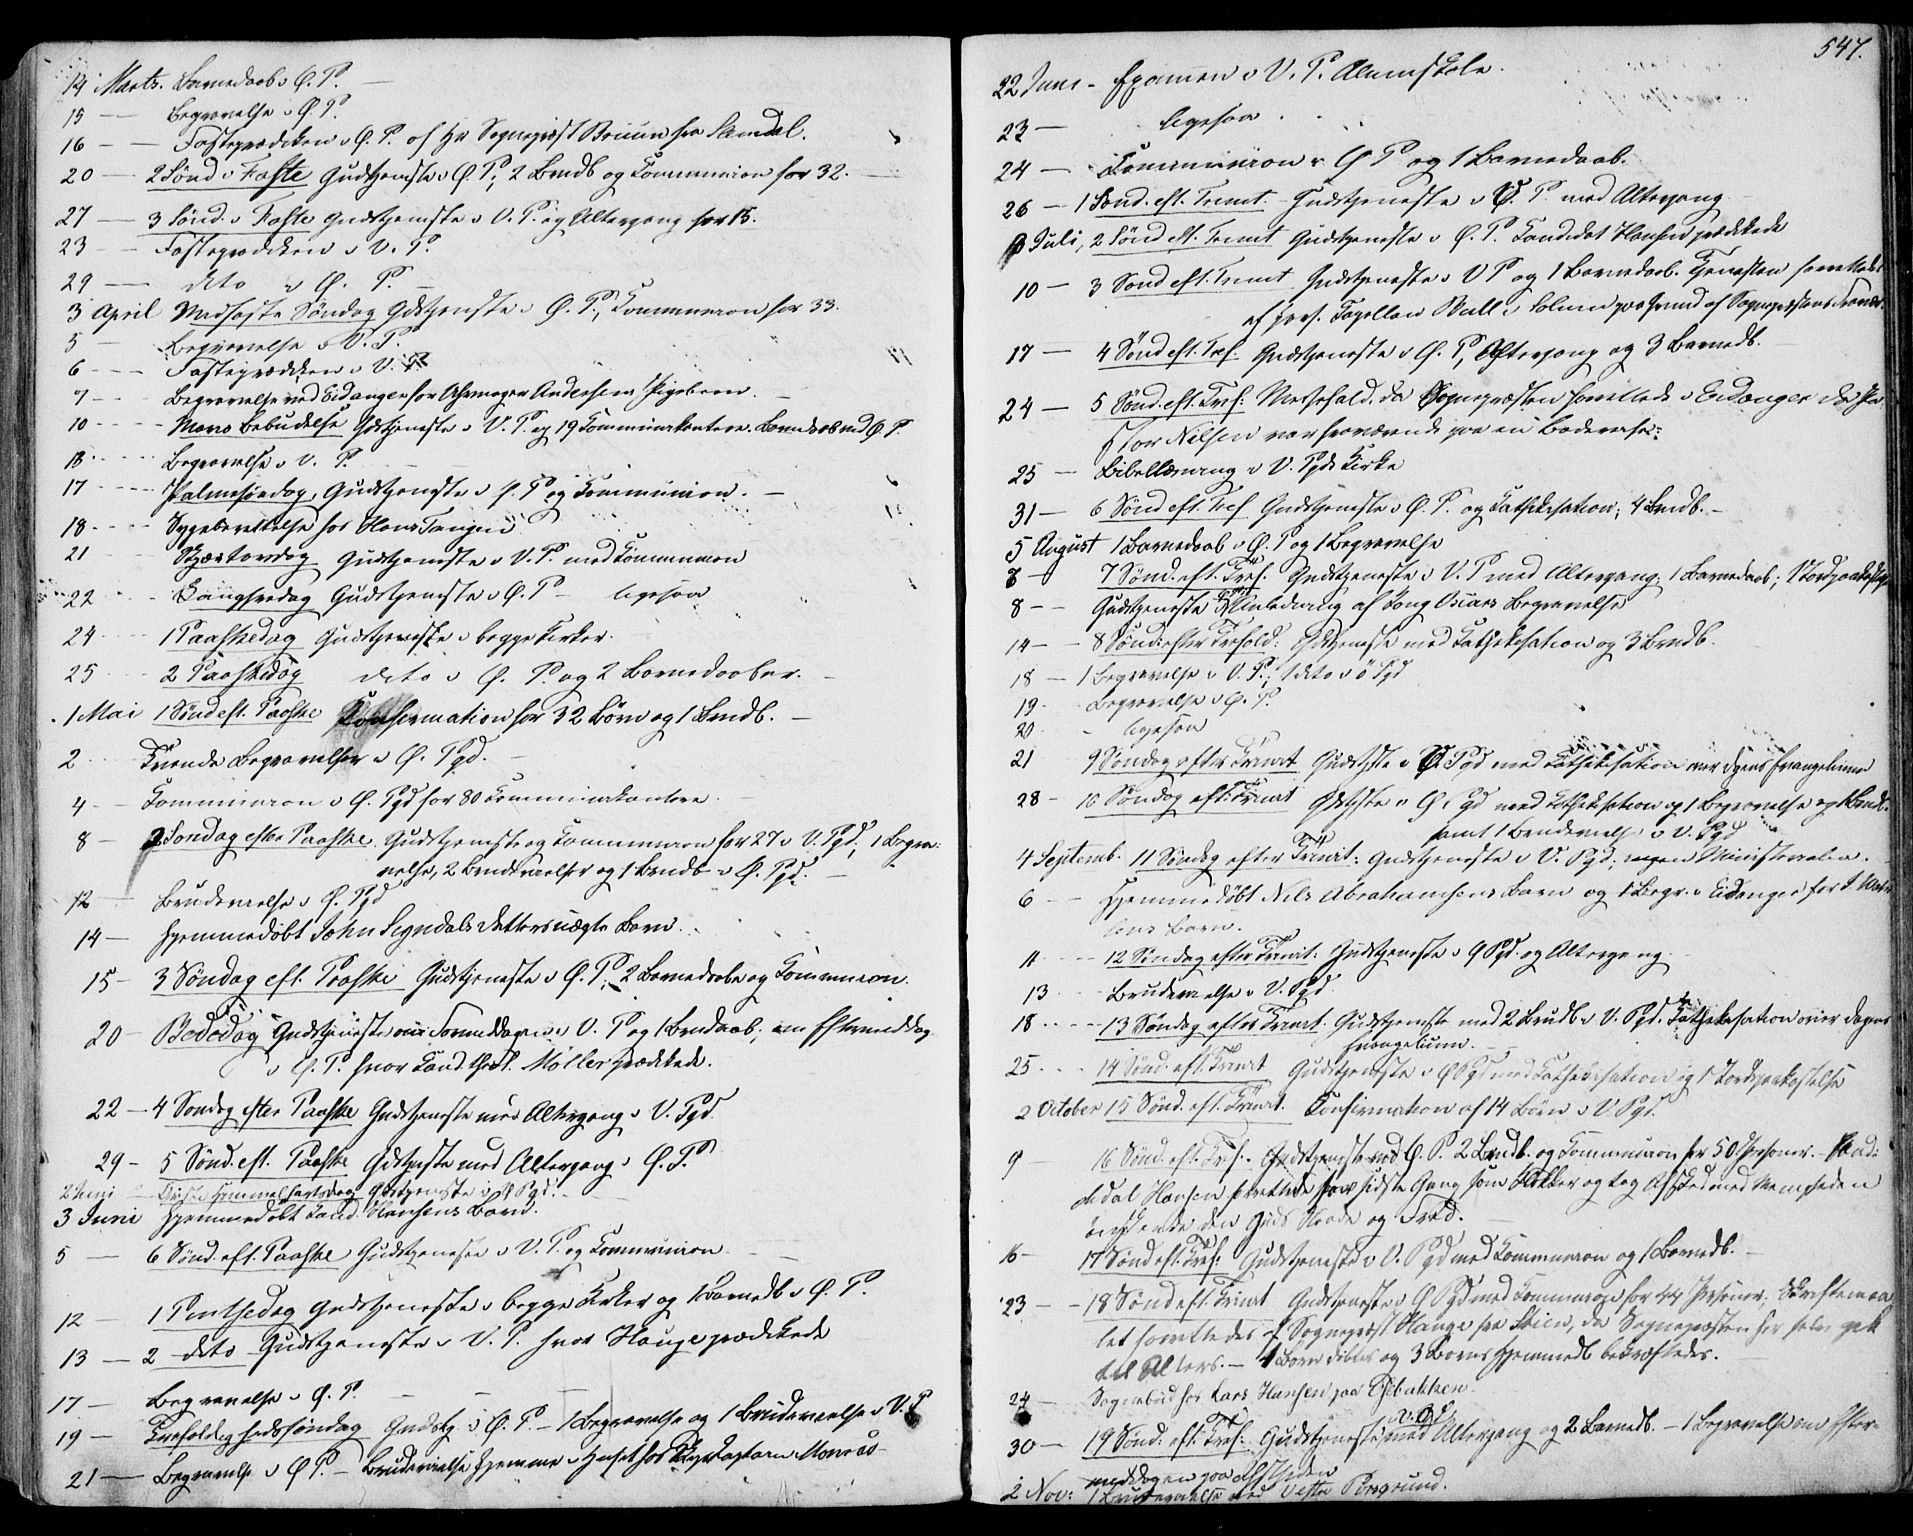 14 Marts. Barnedaab i Ø. P.
15 — Begravelse i Ø. P.
16 — Fasteprædiken i Ø. P. af Hr Sognepræst Bruun fra
20 — 2 Sønd i Faste Gudstjeneste i Ø. P., 2 Barnedb og Communion for 32.
27 — 3 Sønd. i Faste Gudstjeneste i V. P. og Altergang for 15.
23 — Fasteprædiken i V. P.
29 — dito i Ø. P.
3 April Midfaste Søndag Gdstjenste i Ø. P., Communion for 33.
5 — Begravelse i V. P.
6 — Fasteprædiken i V. P.
7 — Begravelse ved Eidanger for Andersens Pigebarn.
10 — Maria Bebudelse Gdstjeneste i V. P. og 19 Communikantere. Barnedaab ved Ø. P.
13 — Begravelse i V. P.
17 — Palmesøndag, Gudstjeneste i Ø. P og Communion.
18 — Sygeberettelse hos Hans Tangen
21 Skjærtorsdag Gudstjeneste i V. P. med Communion
22 Langfredag Gudstjeneste i Ø. P — ligesaa
24 1 Paaskedag Gudstjeneste i begge Kirker.
25 2 Paaskedag dito i Ø. P og 2 Barnedaaber.
1 Mai 1 Sønd eft. Paaske Confirmation for 32 Børn og 1 Barndb.
2 Tvende Begravelser i Ø. Pgd.
4 — Communion i Ø. Pgd for 80 Communikantere.
8 — 2 Søndag efter Paaske Gudstjeneste og Communion for 27 i V. Pgd., 1 Begra-
velse, 2 Brudevielser og 1 Barndb i Ø. Pgd.
12 — Brudevielse i Ø. Pgd
14 — Hjemmedøbt John Datters uægte Barn.
15 — 3 Søndag eft. Paaske Gudstjeneste i Ø. P., 2 Barnedaabe og Communion.
20 — Bededag Gudstjeneste om Formiddagen i V. P og 1 Barndaab; om Eftermiddag
i Ø. P. hvor Cand. theol. Møller prædikede.
22 — 4 Søndag efter Paaske Gudstjeneste med Altergang i V. Pgd.
29 — 5 Sønd. eft. Paaske Gdstjeneste med Altergang i Ø. P.
2 Juni Christi Himmelfartsdag Gdstjeneste i Pgd.
3 Juni Hjemmedøbt Cand. Hansens Barn.
5 — 6 Sønd. eft. Paaske Gudstjeneste i V. P. og Communion
12 — 1 Pintsedag Gudstjeneste i begge Kirker og 1 Barnedb i Ø. P.
13 — 2 dito Gudstjeneste i V. P. hvor Hauge prædikede
17 — Begravelse i Ø. P.
19 — Treefoldighedssøndag Gudstj i Ø. P. — 1 Begravelse og 1 Brudevielse i V. P
21 — Begravelse i Ø P. — Brudevielse hjemme i Huset hos
547.
22 Juni — Examen i V. P. Almuskole.
23 — ligesaa
24 — Communion i Ø P og 1 Barnedaab.
26 — 1 Sønd. eft. Trinit. Gudstjeneste i Ø. P. med Altergang
3 Juli, 2 Sønd eft. Trinit Gudstjeneste i Ø. P. Candidat Hansen prædikede
10 — 3 Sønd eft. Trinit Gudstjeneste i V P og 1 Barnedaab. Tjenesten forrettedes
af pers. Capellan paa Grund af Sognepræstens
17 — 4 Sønd eft. Tref. Gudstjeneste i Ø. P, Altergang og 3 Barnedb.
24 — 5 Sønd. eft. Tref: Messefald, da Sognepræsten forrettede i Eidanger da Pa-
stor Nilsen var fraværende paa en Badereise.
25 — Bibellæsning i V. Pgds Kirke
31 — 6 Sønd eft. Tref Gudstjeneste i Ø. P. og Cathekisation; 4 Barndb.
5 August 1 Barnedaab i Ø. P og 1 Begravelse
7 — 7 Sønd. eft. Tref. Gudstjeneste i V. P med Altergang; 1 Barnedaab; 1 Jordpaakastelse
8 — Gudstjeneste i Anledning af Kong Oscars Begravelse
14 — 8 Sønd. efter Trefold: Gdstjeneste med Cathekisation og 3 Barndb.
18 — 1 Begravelse i V. P.; 1 dito i Ø Pgd
19 Begravelse i Ø. P.
20 ligesaa
21 9 Søndag efter Trinit Gudstjste i Ø. Pgd med Cathekisation over Dagens Evangelium
28 — 10 Søndag eft. Trinit Gdstjste i Ø. Pgd med Cathekisation og 1 Begravelse og 1 Barndb.
samt 1 Brudevielse i V. Pgd
4 Septemb. 11 Søndag efter Trinit: Gudstjeneste i V. Pgd; ingen Ministerialia.
6 — Hjemmedøbt Nils Abrahamsens Barn og 1 Begr. i Eidanger for
Barn.
11 — 12 Søndag efter Trinit. Gudstjeneste i Ø Pgd. og Altergang
13 Brudevielse i V. Pgd
18 — 13 Søndag efter Trinit. Gudstjeneste med 2 Brudb i V. Pgd. Cathekisation over Dagens
Evangelium.
25 — 14 Sønd. eft. Trinit Gudstjeneste i Ø Pgd med Cathekisation og 1 Jordpaakastelse
2 October 15 Sønd. eft. Trinit. Confirmation af 14 Børn i V Pgd.
9 — 16 Sønd. eft. Tref. Gudstjeneste ved Ø. P. 2 Barndb. og Communion for 50 Personer. — Cand:
Hansen forrettede for sidste Gang som og tog Afsked med Menigheden
ønskende den Guds Naade og Fred.
16 — 17 Sønd eft. Tref. Gudstjeneste i V. Pgd med Communion og 1 Barnedb.
23 — 18 Sønd eft. Trinit Gudstjeneste i Ø Pgd med Communion for 44 Personer; Skriftemaa-
let forrettedes af Sognepræst Hauge fra Skien, da Sognepræsten her selv gik
til Alters. — 1 Barn døbtes og 3 Børns Hjemmedb bekræftedes.
24 — Sognebud hos Lars Hansen paa
30 — 19 Sønd. eft. Tref. Gudstjeneste i V. Pgd med Altergang og 2 Barnedb. — 1 Begravelse om Efter-
middagen paa
2 Nov: 1 Brudevielse ved Vestre Porsgrund.